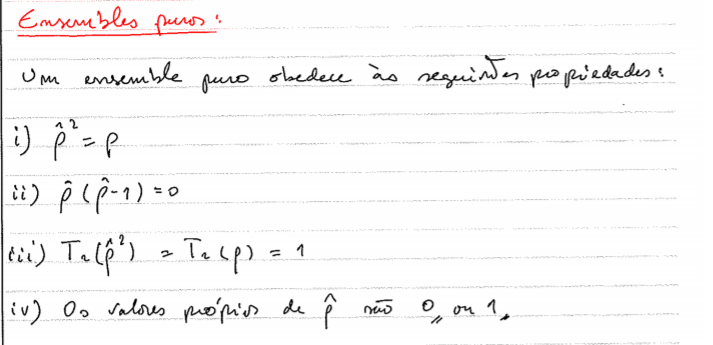 Ensembles puros:
Um ensemble puro obedece às seguintes propriedades:
i) ρ̂² = ρ
ii) ρ̂(ρ̂-1) = 0
iii) Tr(ρ̂²) = Tr(ρ) = 1
iv) Os valores próprios de ρ̂ são 0 ou 1.